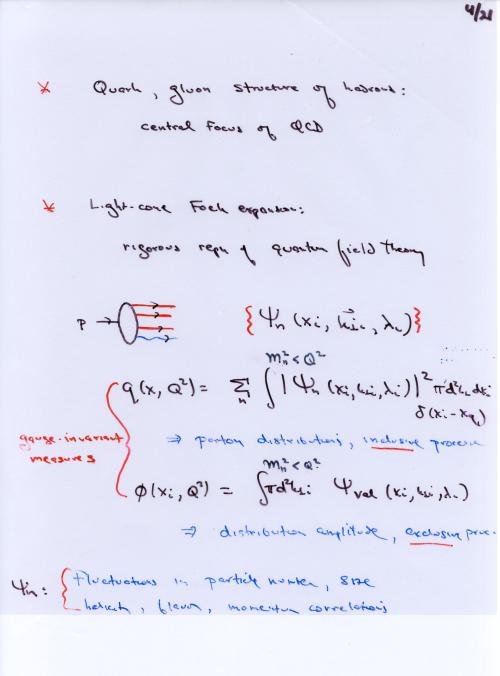 4/21
* Quark, gluon structure of hadrons:
central focus of QCD
* Light-cone Fock expansion:
rigorous repn of quantum field theory
p → {Ψn (xi, k⃗⊥i, λi)}
q(x, Q²) = Σn ∫^{m²n < Q²} |Ψn (xi, k⊥i, λi)|² π d²k⊥ dxi
δ(xi - xq)
gauge-invariant
measures
⇒ parton distributions, inclusive processes
φ(xi, Q²) = ∫^{m²n < Q²} π d²k⊥i Ψval (xi, k⊥i, λi)
⇒ distribution amplitude, exclusive proc.
Ψn: { Fluctuations in particle number, size
helicity, flavor, momentum correlations